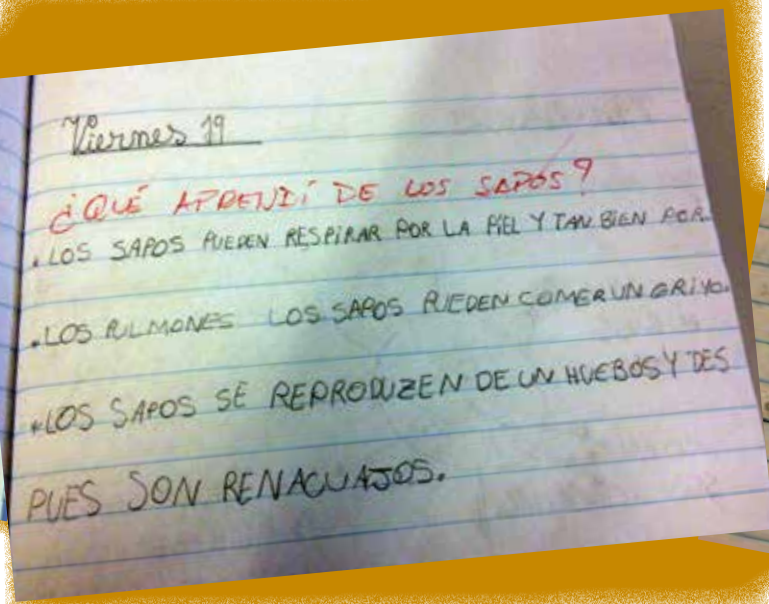 Viernes 19
¿QUÉ APRENDí DE LOS SAPOS?
.LOS SAPOS PUEDEN RESPIRAR POR LA PIEL Y TAN BIEN POR.
.LOS PULMONES LOS SAPOS PUEDEN COMER UN GRIYO.
.LOS SAPOS SE REPRODUZEN DE UN HUEBOS Y DES
PUES SON RENACUAJOS.